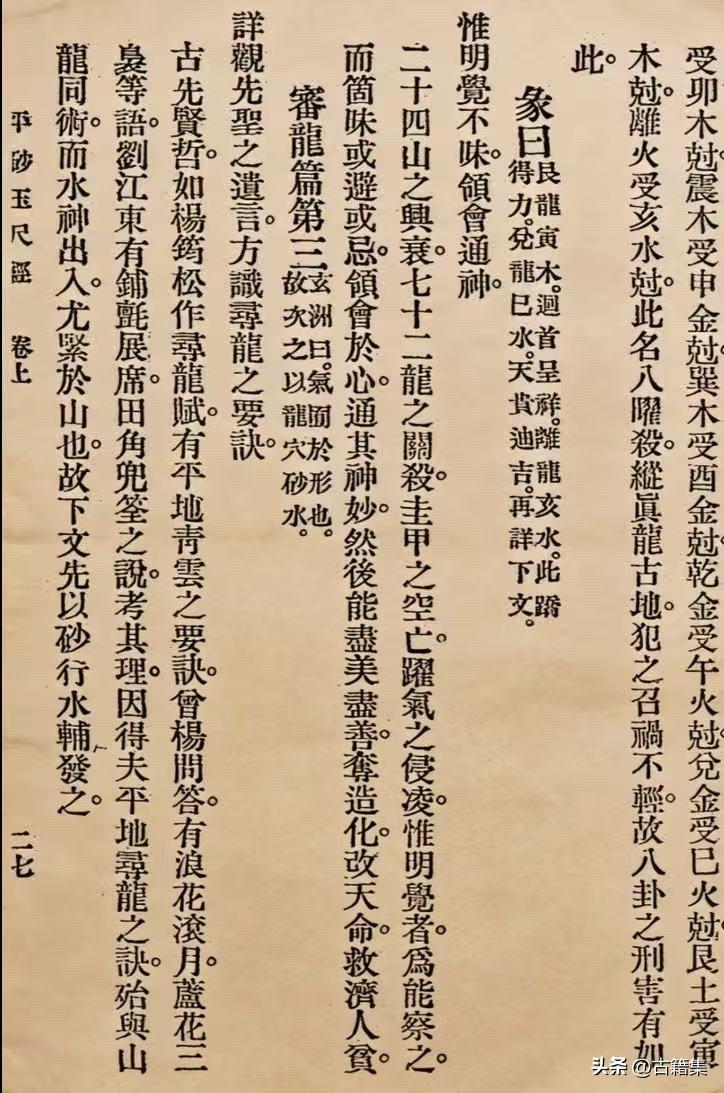 受卯木尅震木受申金尅。巽木受酉金尅。乾金受午火尅。兌金受巳火尅。艮土受寅
木尅。離火受亥水尅。此名八曜殺。縱眞龍古地。犯之召禍不輕。故八卦之刑害有如
此。
彖曰艮龍寅木。迴首呈祥。離龍亥水。此蹻
得力。兌龍巳水。天貴迪吉。再詳下文。
惟明覺不昧。領會通神。
二十四山之興衰。七十二龍之關殺。圭甲之空亡。躍氣之侵凌。惟明覺者。爲能察之。
而箇昧或避或忌。領會於心。通其神妙。然後能盡美盡善。奪造化。改天命。救濟人貧。
審龍篇第三玄洲曰。氣囿於形也。
故次之以龍穴砂水。
詳觀先聖之遺言。方識尋龍之要訣。
古先賢哲。如楊筠松作尋龍賦。有平地靑雲之要訣。曾楊問答。有浪花滾月。蘆花三
裊等語。劉江東有鋪氈展席。田角兜筌之說。考其理。因得夫平地尋龍之訣。殆與山
龍同術。而水神出入。尤緊於山也。故下文先以砂行水輔發之。
平砂玉尺經 卷上 二七
头条 @古籍集